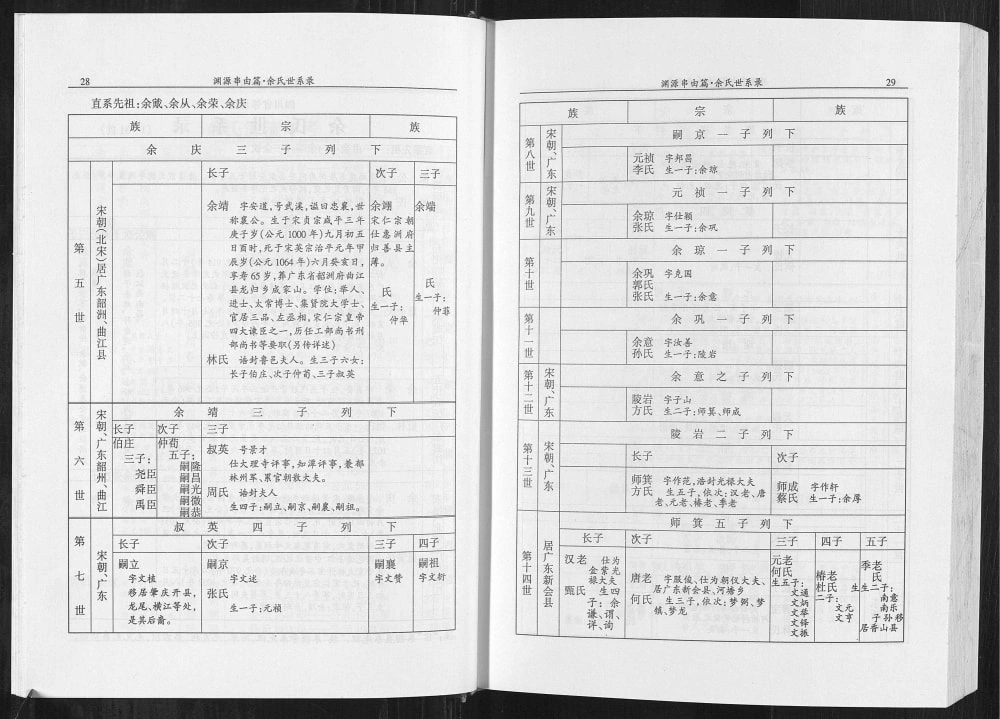 28
渊源串由篇·余氏世系录
直系先祖:余戬、余从、余荣、余庆
族 宗 族
余 庆 三 子 列 下
第五世
宋朝(北宋)居广东韶州、曲江县
长子
次子
三子
余靖 字安道,号武溪,谥曰忠襄,世
称襄公。生于宋贞宗咸平三年
庚子岁(公元1000年)九月初五
日酉时,死于宋英宗治平元年甲
辰岁(公元1064年)六月癸亥日,
享寿65岁,葬广东省韶洲府曲江
县龙归乡成家山。学位:举人、
进士、太常博士、集贤院大学士、
官居三品、左丞相,宋仁宗皇帝
四大谏臣之一,历任工部尚书刑
部尚书等要职(另传详述)
林氏 诰封鲁邑夫人。生三子六女:
长子伯庄、次子仲荀、三子叔英
余翊
宋仁宗朝
仕惠洲府
归善县主
薄。
氏
生一子:
仲华
余端
氏
生一子:
仲菲
余 靖 三 子 列 下
第六世
宋朝、广东韶州、曲江
长子
次子
三子
伯庄
三子:
尧臣
舜臣
禹臣
仲荀
五子:
嗣隆
嗣昌
嗣光
嗣微
嗣恭
叔英 号景才
仕大理寺评事,知潭评事,兼都
林州军、累官朝散大夫。
周氏 诰封夫人
生四子:嗣立、嗣京、嗣襄、嗣祖。
叔 英 四 子 列 下
第七世
宋朝、广东
长子
次子
三子
四子
嗣立
字文植
移居肇庆开县,
龙尾、横江等处,
是其后裔。
嗣京
字文述
张氏
生一子:元桢
嗣襄
字文赞
嗣祖
字文轩
渊源串由篇·余氏世系录
29
族 宗 族
第八世
宋朝、广东
嗣 京 一 子 列 下
元祯 字邦昌
李氏 生一子:余琼
第九世
宋朝、广东
元 祯 一 子 列 下
余琼 字仕颖
张氏 生一子:余巩
第十世
余 琼 一 子 列 下
余巩 字克国
郭氏
张氏 生一子:余意
第十一世
余 巩 一 子 列 下
余意 字汝善
孙氏 生一子:陵岩
第十二世
宋朝、广东
余 意 之 子 列 下
陵岩 字子山
方氏 生二子:师箕、师成
第十三世
宋朝、广东
陵 岩 二 子 列 下
长子
次子
师箕 字作范,浩封光禄大夫
方氏 生五子,依次:汉老、唐
老、元老、椿老、季老
师成 字作轩
蔡氏 生一子:余厚
第十四世
居广东新会县
师 箕 五 子 列 下
长子
次子
三子
四子
五子
汉老 仕为
金紫光
禄大夫
甄氏 生四
子:余
谦、谓、
详、询
唐老 字服俊、仕为朝仪大夫、
居广东新会县、河塘乡
何氏 生三子,依次:梦弼、梦
镇、梦龙
元老
何氏
生五子:
文通
文炳
文举
文铎
文振
椿老
杜氏 生
二子:
文元
文亨
季老
氏
生二子:
南意
南乐
子孙移
居香山县